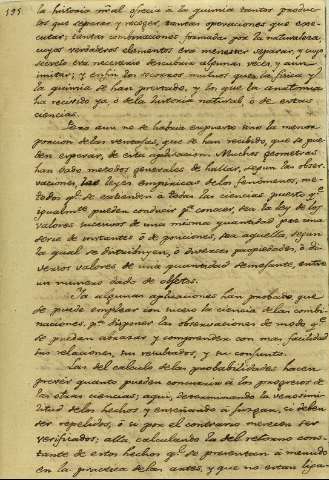 195
la historia nãl ofrecía á la quimia tantos produc-
tos que separar y recoger, tantas operaciones que exe-
cutar; tantas combinaciones formadas por la naturaleza,
cuyos verdaderos elementos era menester separar, y cuyo
secreto era necesario descubrir algunas veces, y aun
imitar; y en fin los socorros mutuos que la física y
la quimia se han prestado, y lo que la anatomía
ha recibido ya, ó de la historia natural, ó de estas
ciencias.
Pero aun no se habria expuesto sino la menor
porcion de las ventajas, que se han recibido, que se pue-
den esperar, de esta aplicacion. Muchos geometras
han dado metodos generales de hallar, segun las obser-
vaciones, las leyes empiricas de los fenomenos, me-
todos qᵉ se extienden á todas las ciencias, puesto qᵉ
igualmte pueden conducir pª conocer, sea la ley de los
valores sucesivos de una misma quantidad por una
serie de instantes ó de posiciones, sea aquella segun
la qual se distribuyen, ó diversas propiedades, ó di-
versos valores de una quantidad semejante, entre
un numero dado de objetos.
Ya algunas aplicaciones han probado, que
se puede emplear con suceso la ciencia de las combi-
naciones, pª disponer las observaciones de modo qᵉ
se puedan abrazar y comprender con mas facilidad
sus relaciones, sus resultados, y su conjunto.
Las del calculo de las probabilidades hacen
prever quanto pueden concurrir á los progresos de
las otras ciencias; aqui, determinando la verosimi-
litud de los hechos y enseñando á juzgar, si deben
ser repelidos, ó si por el contrario merecen ser
verificados; allá calculando la del retorno cons-
tante de estos hechos qᵉ se presentan á menudo
en la práctica de las artes, y que no estan liga-